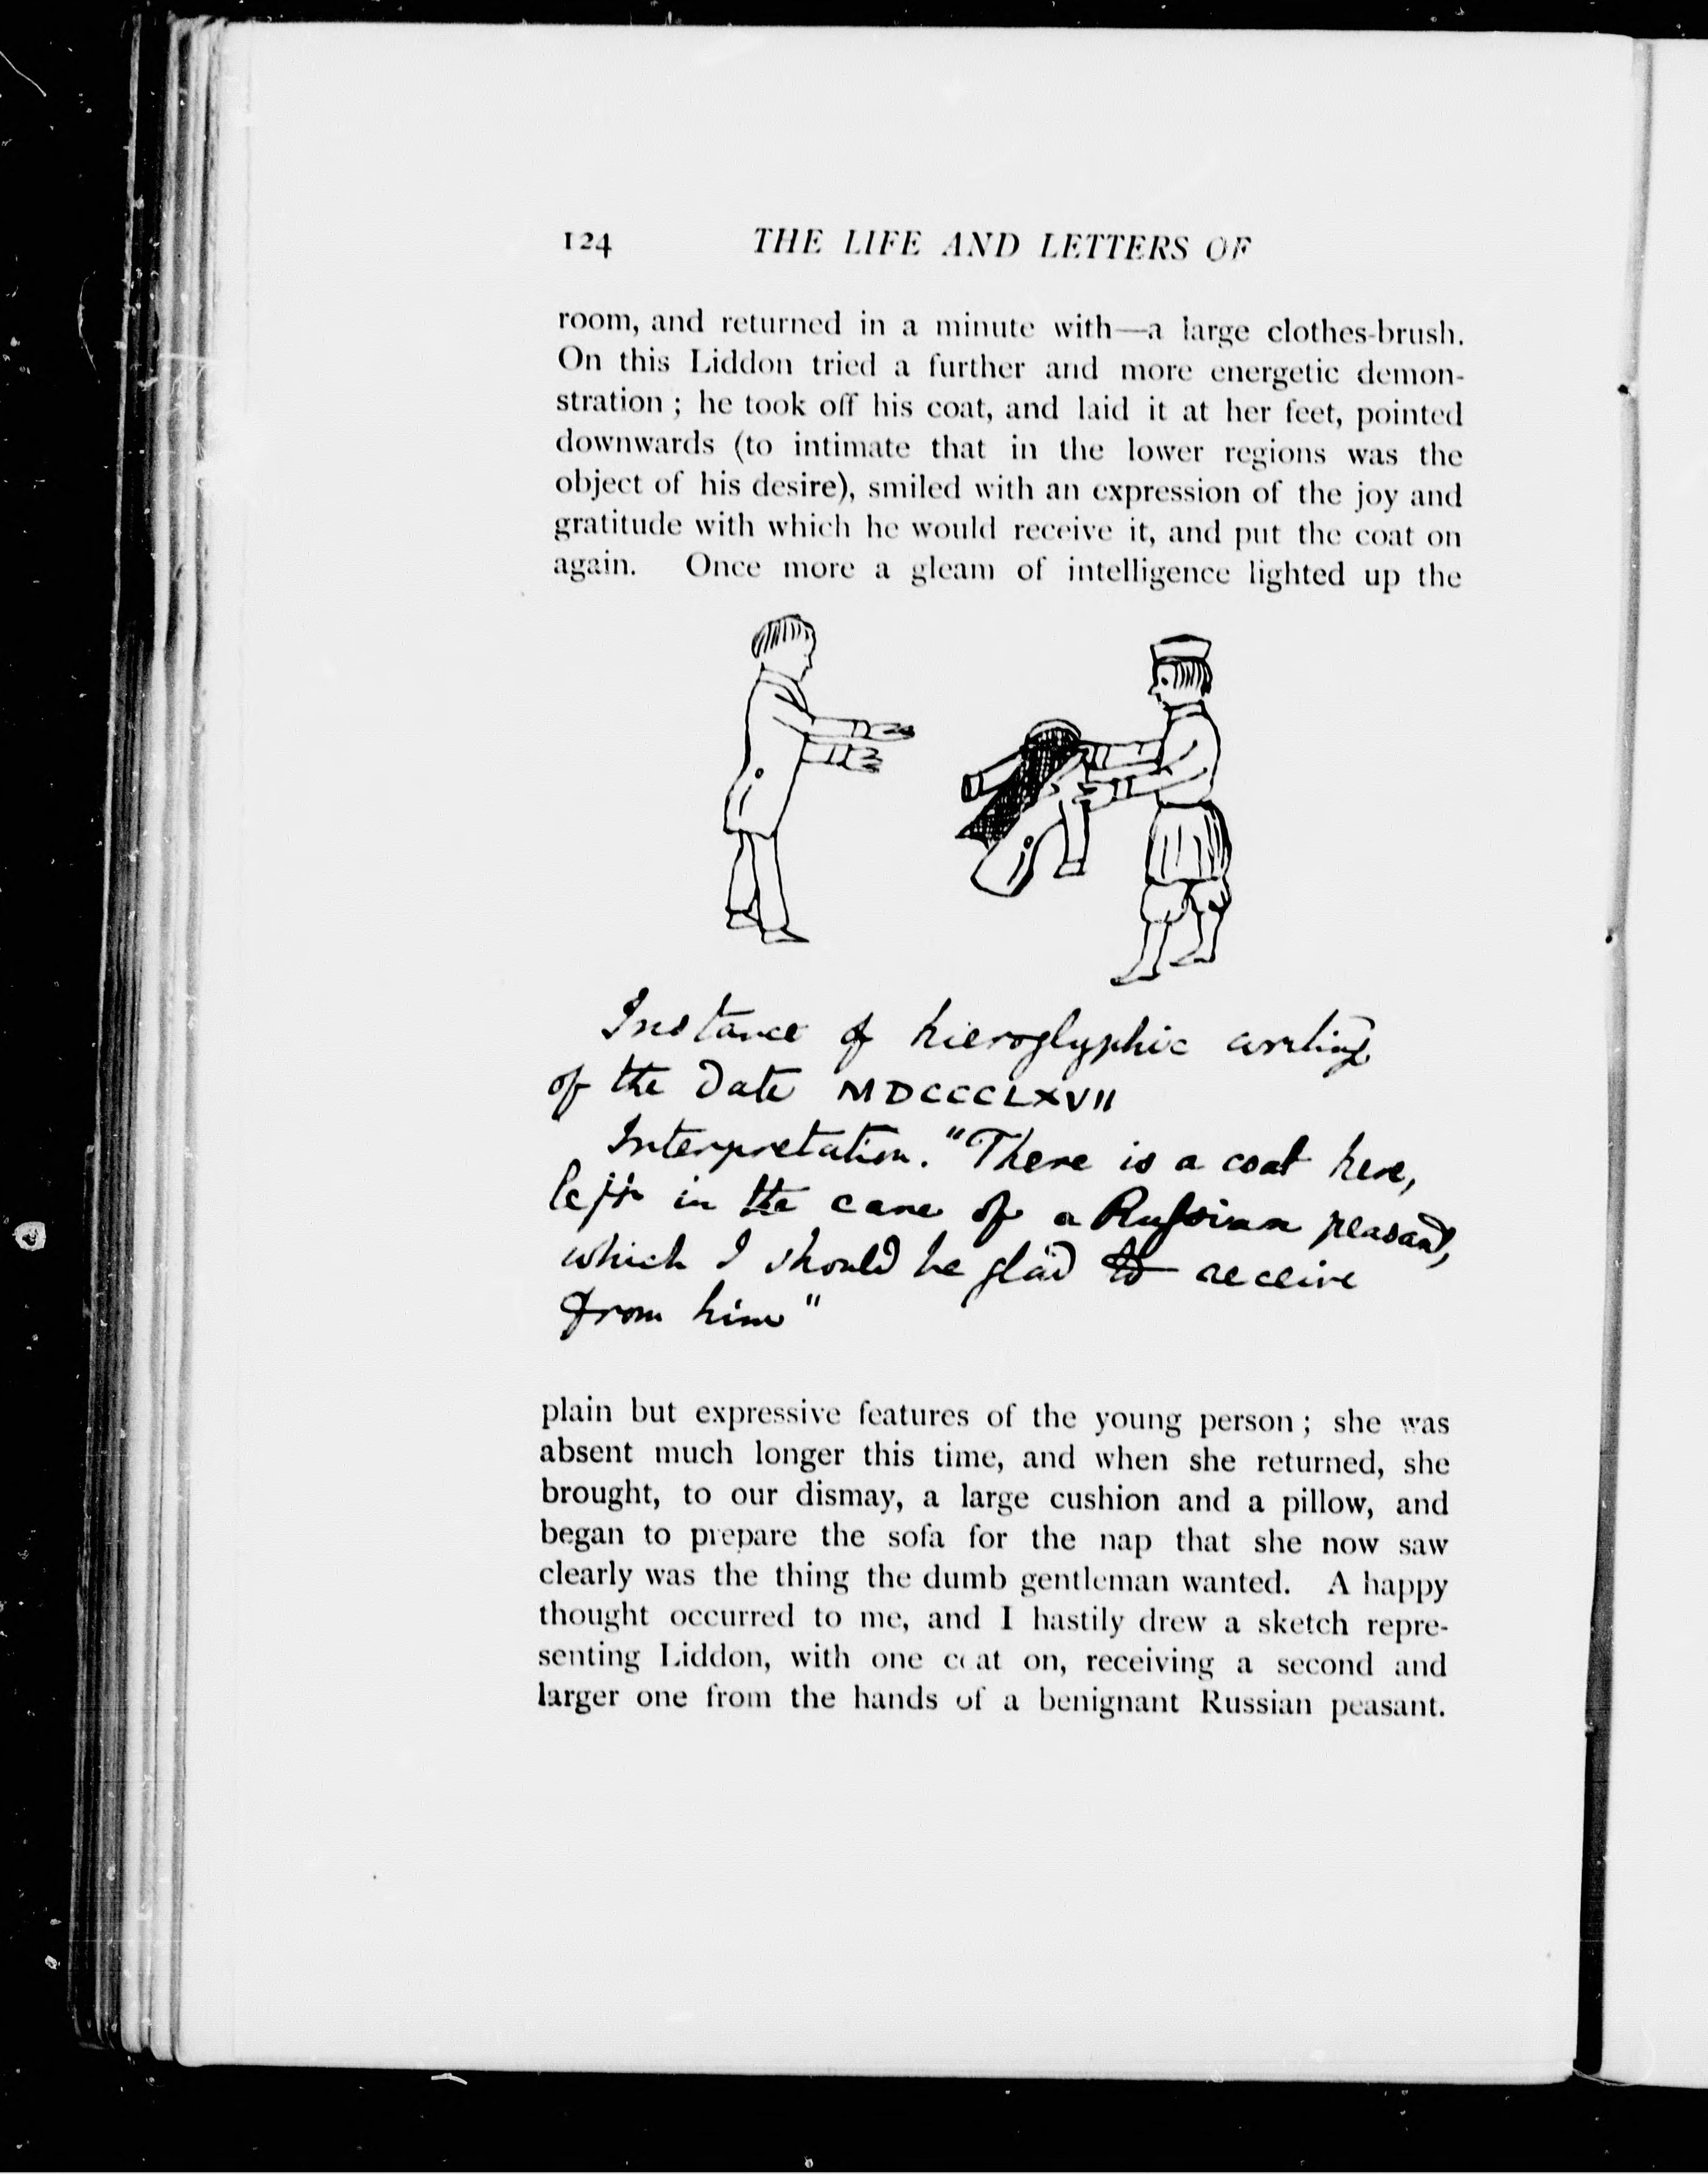 124 THE LIFE AND LETTERS OF
room, and returned in a minute with—a large clothes-brush.
On this Liddon tried a further and more energetic demon-
stration ; he took off his coat, and laid it at her feet, pointed
downwards (to intimate that in the lower regions was the
object of his desire), smiled with an expression of the joy and
gratitude with which he would receive it, and put the coat on
again. Once more a gleam of intelligence lighted up the
Instance of hieroglyphic writing
of the date MDCCCLXVII
Interpretation. "There is a coat here,
left in the care of a Russian peasant,
which I should be glad to receive
from him"
plain but expressive features of the young person ; she was
absent much longer this time, and when she returned, she
brought, to our dismay, a large cushion and a pillow, and
began to prepare the sofa for the nap that she now saw
clearly was the thing the dumb gentleman wanted. A happy
thought occurred to me, and I hastily drew a sketch repre-
senting Liddon, with one coat on, receiving a second and
larger one from the hands of a benignant Russian peasant.